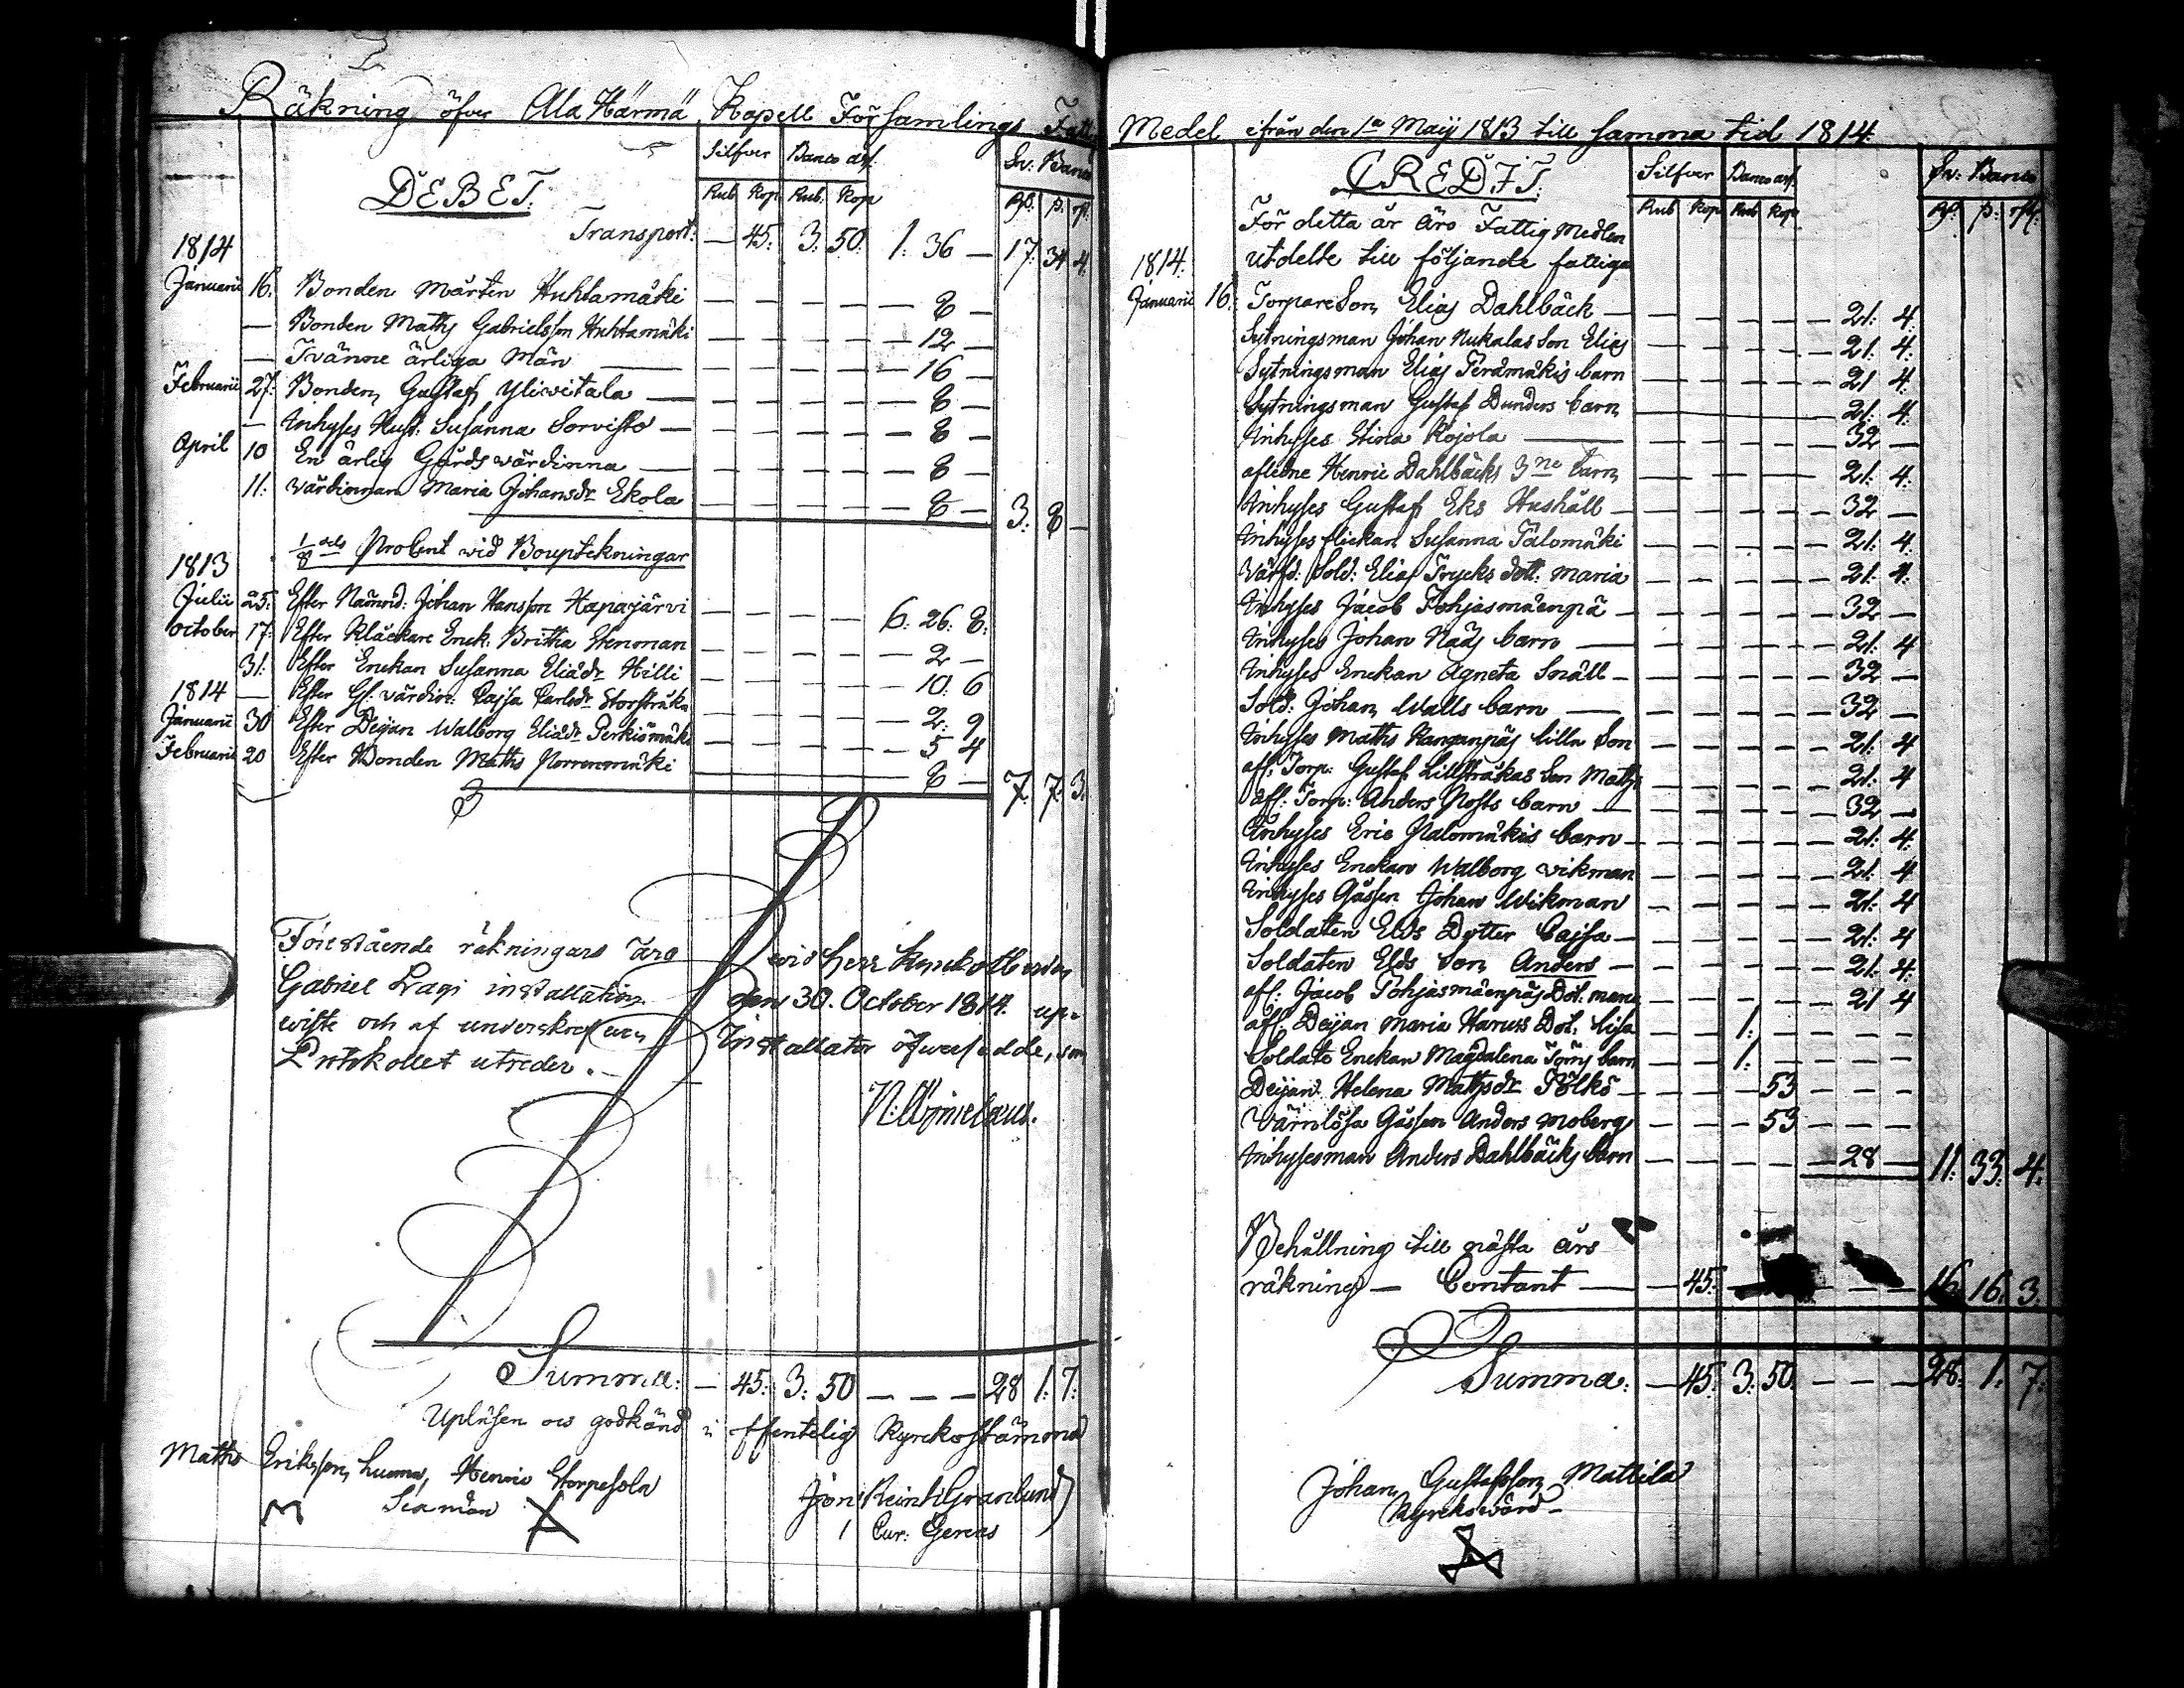 Räkning öfver Ala Härmä Kapell Församlings Fatt
DEBET.
Silfver Banco ass. Sv: Banco
Rub Kop Rub. Kop Rd. ß. rst.
Transport: — 45: 3: 50. 1: 36 — 17: 34 4.
1814
Januarii 16. Bonden Mårten Huhtamäki — — — — — 8 —
— Bonden Maths Gabrielsson Huhtamäki — — — — — 12 —
— Tvänne ärliga Män — — — — — 16 —
Februarii 27. Bonden Gustaf Yliwitala — — — — — 8 —
— Inhyses Hust: Susanna Sorvisto — — — — — 8 —
April 10 En ärlig Gårdsvärdinna — — — — — 8 —
11: Värdinnan Maria Johansdr Ekola — — — — — 8 — 3: 8 —
1/8 dels Procent vid Bouptekningar
1813
Julii 25: Efter Nämnd: Johan Hansson Haparjärvi — — — — 6: 26: 8:
October 17: Efter Klåckare Enck: Britha Stenman — — — — — 2 —
31: Efter Enckan Susanna Eliædr Hilli — — — — — 10: 6
1814 — Efter Gl: värdin: Cajsa Carlsdr Storstråka — — — — — 2: 9
Januarii 30 Efter Deijan Walborg Eliædr Perkiömäki — — — — — 5 4
Februarii 20 Efter Bonden Maths Norrenmäki — 8 — 7: 7: 3.
Förestående räkningars äro vid Herr Kyrckoherden
Gabriel Lagi installation den 30. October 1814. up-
wiste och af underskrefven Installator öfversedde, som
Protokollet utreder.
Summa: — 45: 3: 50 — — — 28 1: 7:
Upläsen och godkänd i offentelig Kyrckostämma
Maths Eriksson Luoma, Henric Storpesola
Sexmän
Jon: Reinh: Granlund
Cur: Gerens
Medel ifrån den 1a Maij 1813 till samma tid 1814
CREDIT.
Silfver Banco ass. Sv: Banco
Rub Kop Rub Kop Rd. ß: rst.
För detta år äro Fattig Medlen
1814: utdelte till följande fattiga
Januarii 16: Torpare Son Elias Dahlbäck — — — — — — 21: 4:
Sytningsman Johan Nukalas Son Elias — — — — — 21: 4:
Sytningsman Elias Perämäkis barn — — — — — 21 4:
Sytningsman Gustaf Dunders barn — 21: 4:
Inhyses Stina Kojola — — — — — 32 —
aflidne Henric Dahlbäcks 3ne barn — — — — — 21: 4:
Inhyses Gustaf Eks Hushåll — — — — — 32 —
Inhyses flickan Susanna Palomäki — — — — — 21: 4:
Värfd: Sold: Elias Trycks dott: Maria — — — — — 21: 4:
Inhyses Jacob Pohjasmäenpä — — — — — 32 —
Inhyses Johan Näss barn — — — — — 21: 4
Inhyses Enckan Agneta Snäll — — — — — 32 —
Sold: Johan Walls barn — — — — — 32 —
Inhyses Maths Kanganpäs lilla Son — — — — — 21: 4
afl: Torp: Gustaf Lillstråkas Son Maths — — — — — 21: 4
afl: Torp: Anders Posts barn — — — — — 32 —
Inhyses Eric Palomäkis barn — — — — — 21: 4:
Inhyses Enckan Walborg Vikman — — — — — 21: 4
Inhyses Gåssen Johan Wikman — — — — — 21: 4
Soldaten Elds Dotter Cajsa — — — — — 21: 4
Soldaten Elds Son Anders — — — — — 21: 4:
afl: Jacob Pohjasmäenpäs Dot: Maria — — — — — 21 4
afl: Deijan Maria Haruss Dot: Lisa — — 1: — — — —
Soldats Enckan Magdalena Töms barn — — 1: — — — —
Deijan Helena Mathsdr Pölkö — — — 53 — — —
Värnlösa Gåssen Anders Moberg — — — 53 — — —
Inhysesman Anders Dahlbäcks barn — — — — — 28 — 11: 33: 4:
Behållning till nästa års
räkning — Contant — — 45: — — — — 16 16: 3:
Summa: — 45: 3: 50. — — — 28: 1: 7:
Johan Gustafsson Mattila
Kyrckovärd